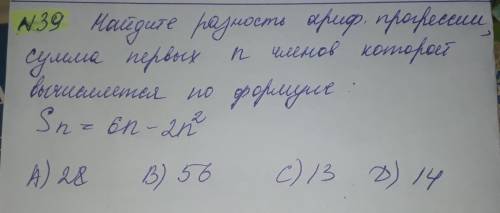 №39 Найдите разность ариф. прогрессии,
сумма первых n членов которой
вычисляется по формуле:
Sn = 6n - 2n²
A) 28 B) 56 C) 13 D) 14